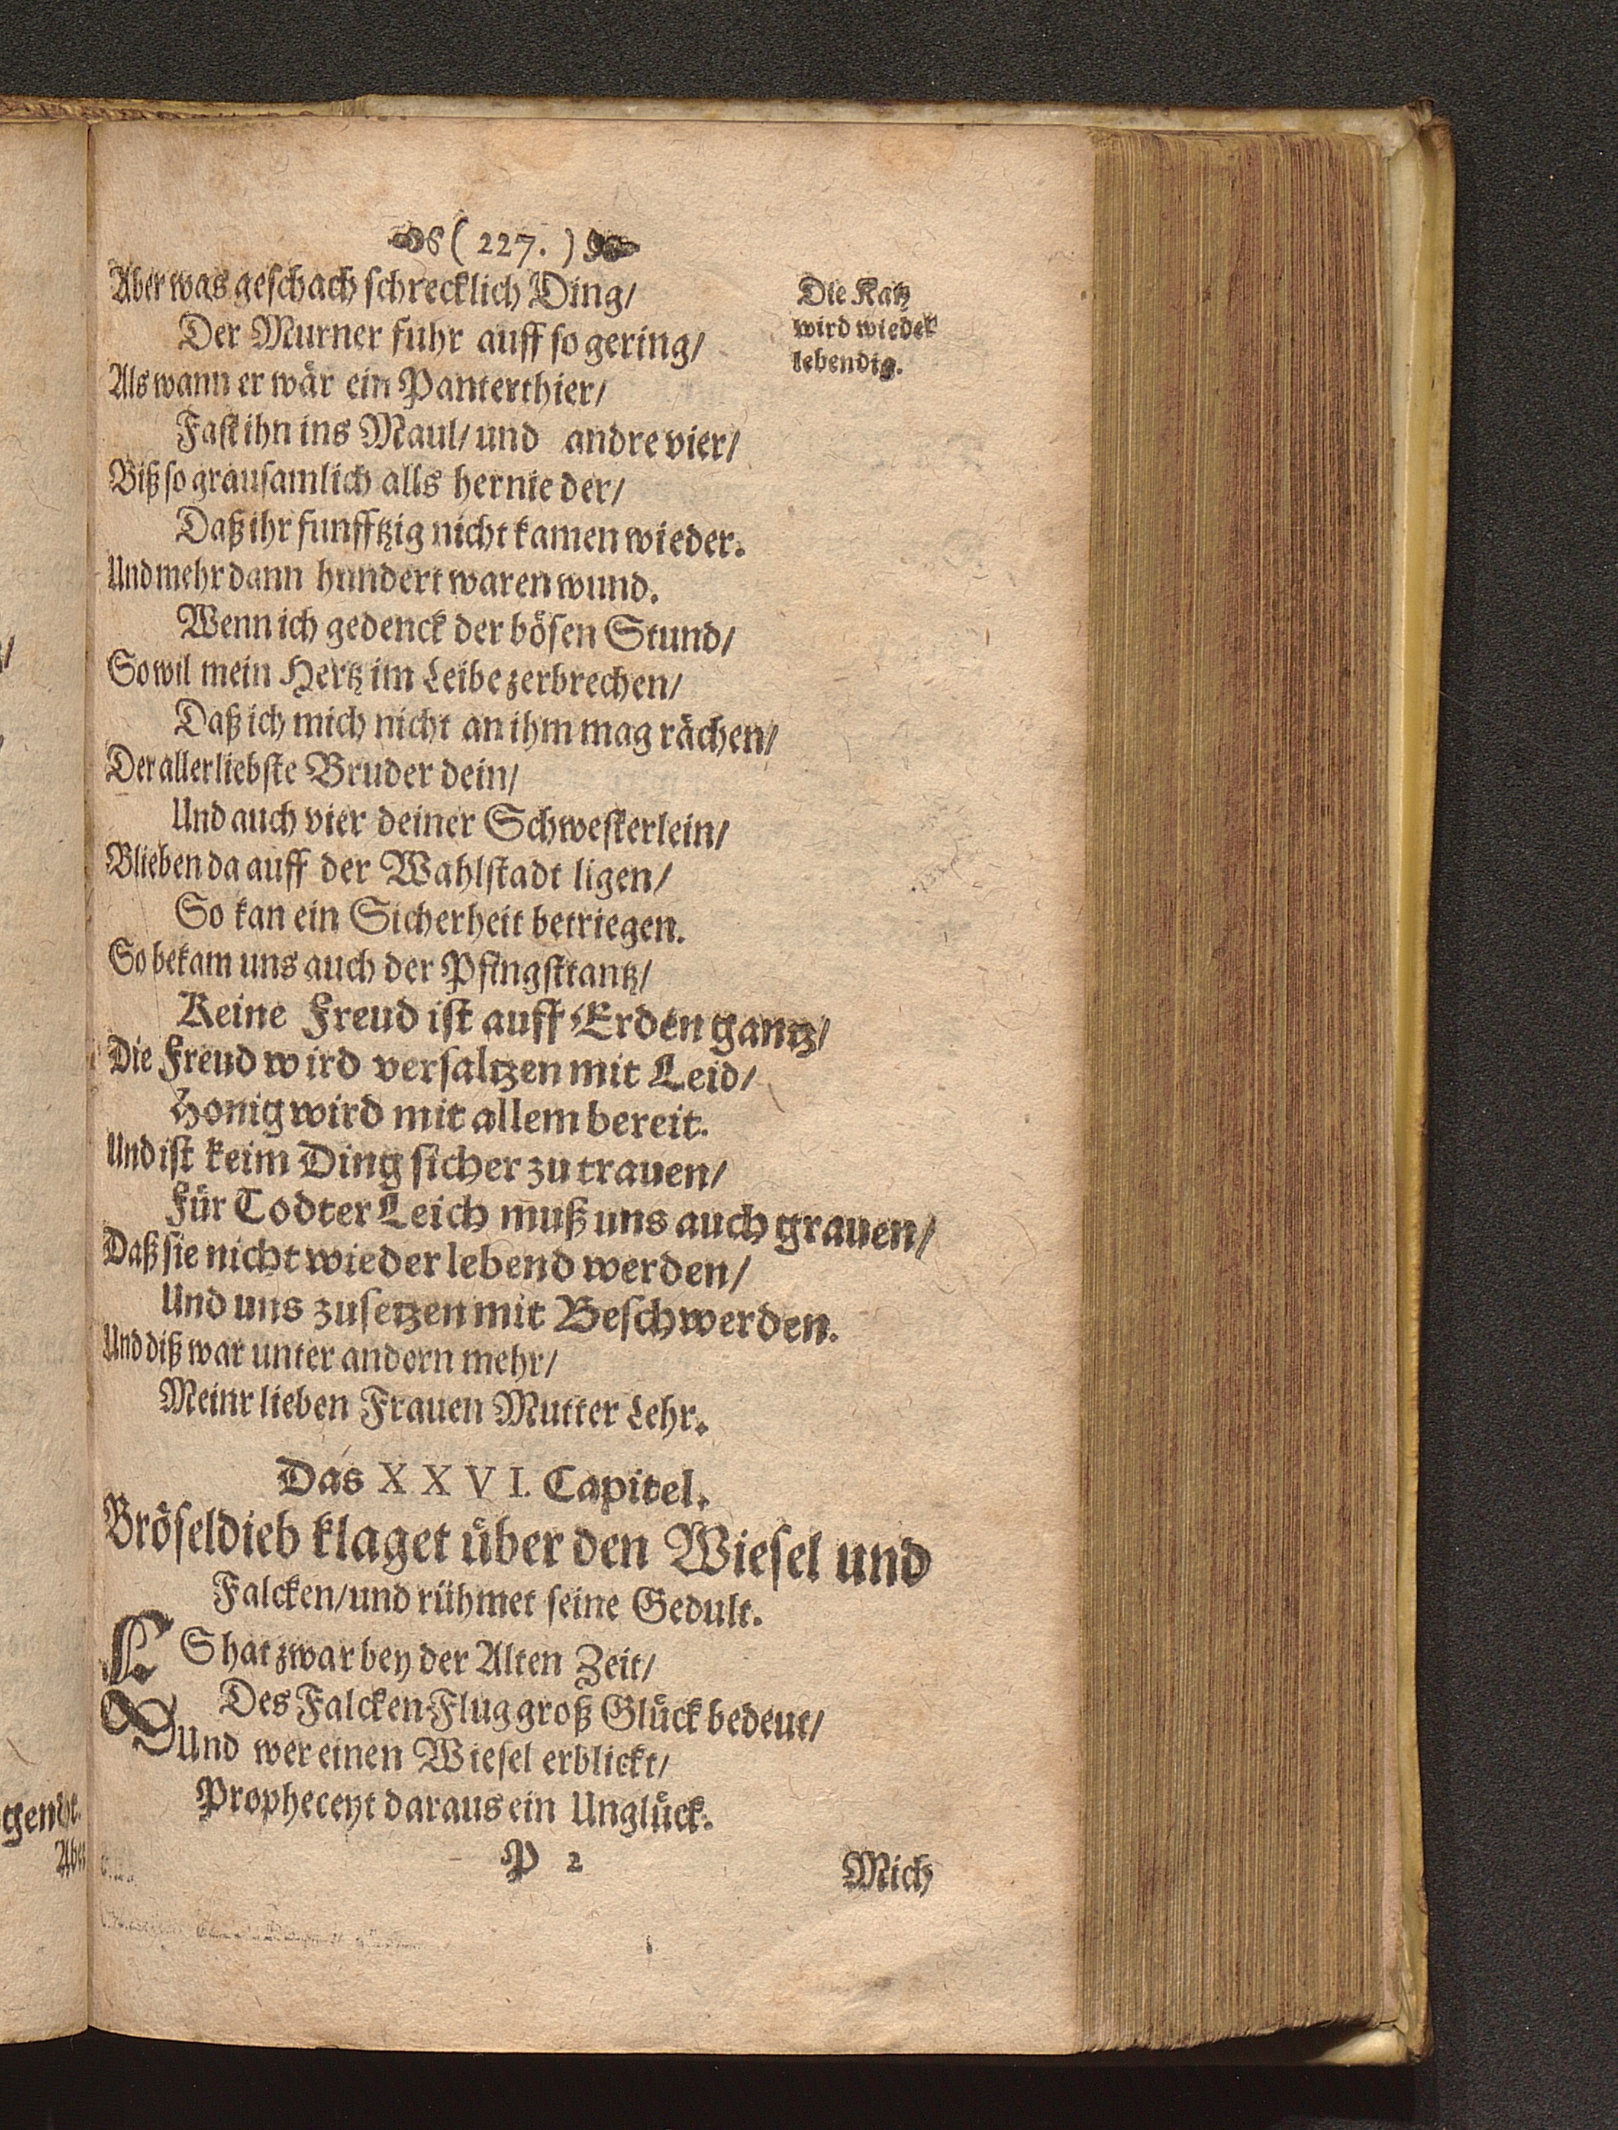 ( 227. )
Aber was geschach schrecklich Ding/
Die Katz
wird wieder
lebendig.
Der Murner fuhr auff so gering/
Als wann er wär ein Panterthier/
Fast ihn ins Maul/ und andre vier/
Biß so grausamlich alls hernieder/
Daß ihr funfftzig nicht kamen wieder.
Und mehr dann hundert waren wund.
Wenn ich gedenck der bösen Stund/
So wil mein Hertz im Leibe zerbrechen/
Daß ich mich nicht an ihm mag rächen/
Der allerliebste Bruder dein/
Und auch vier deiner Schwesterlein/
Blieben da auff der Wahlstadt ligen/
So kan ein Sicherheit betriegen.
So bekam uns auch der Pfingsttantz/
Keine Freud ist auff Erden gantz/
Die Freud wird versaltzen mit Leid/
Honig wird mit allem bereit.
Und ist keim Ding sicher zu trauen/
Für Todter Leich muß uns auch grauen/
Daß sie nicht wieder lebend werden/
Und uns zusetzen mit Beschwerden.
Und diß war unter andern mehr/
Meinr lieben Frauen Mutter Lehr.
Das XXVI. Capitel.
Bröseldieb klaget über den Wiesel und
Falcken/ und rühmet seine Gedult.
ES hat zwar bey der Alten Zeit/
Des Falcken-Flug groß Glück bedeut/
Und wer einen Wiesel erblickt/
Propheceyt daraus ein Unglück.
P 2
Mich